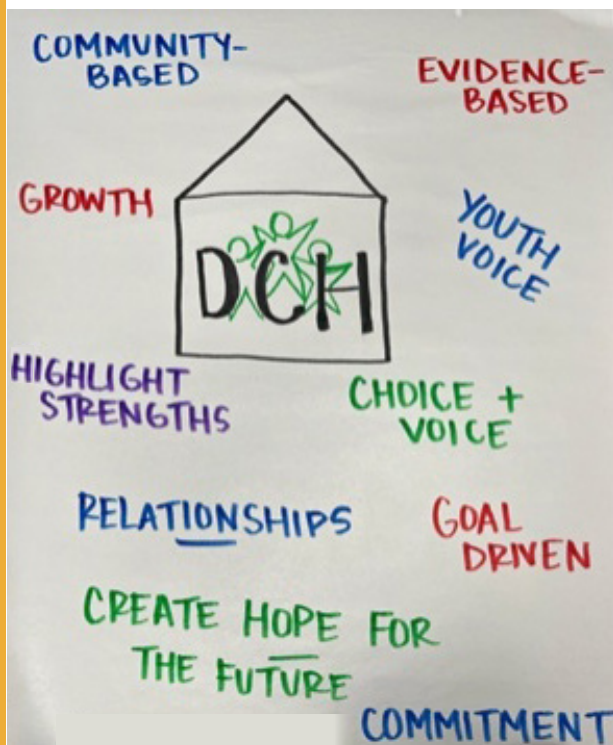 COMMUNITY-
BASED
EVIDENCE-
BASED
GROWTH
YOUTH
VOICE
DCH
HIGHLIGHT
STRENGTHS
CHOICE +
VOICE
RELATIONSHIPS
GOAL
DRIVEN
CREATE HOPE FOR
THE FUTURE
COMMITMENT